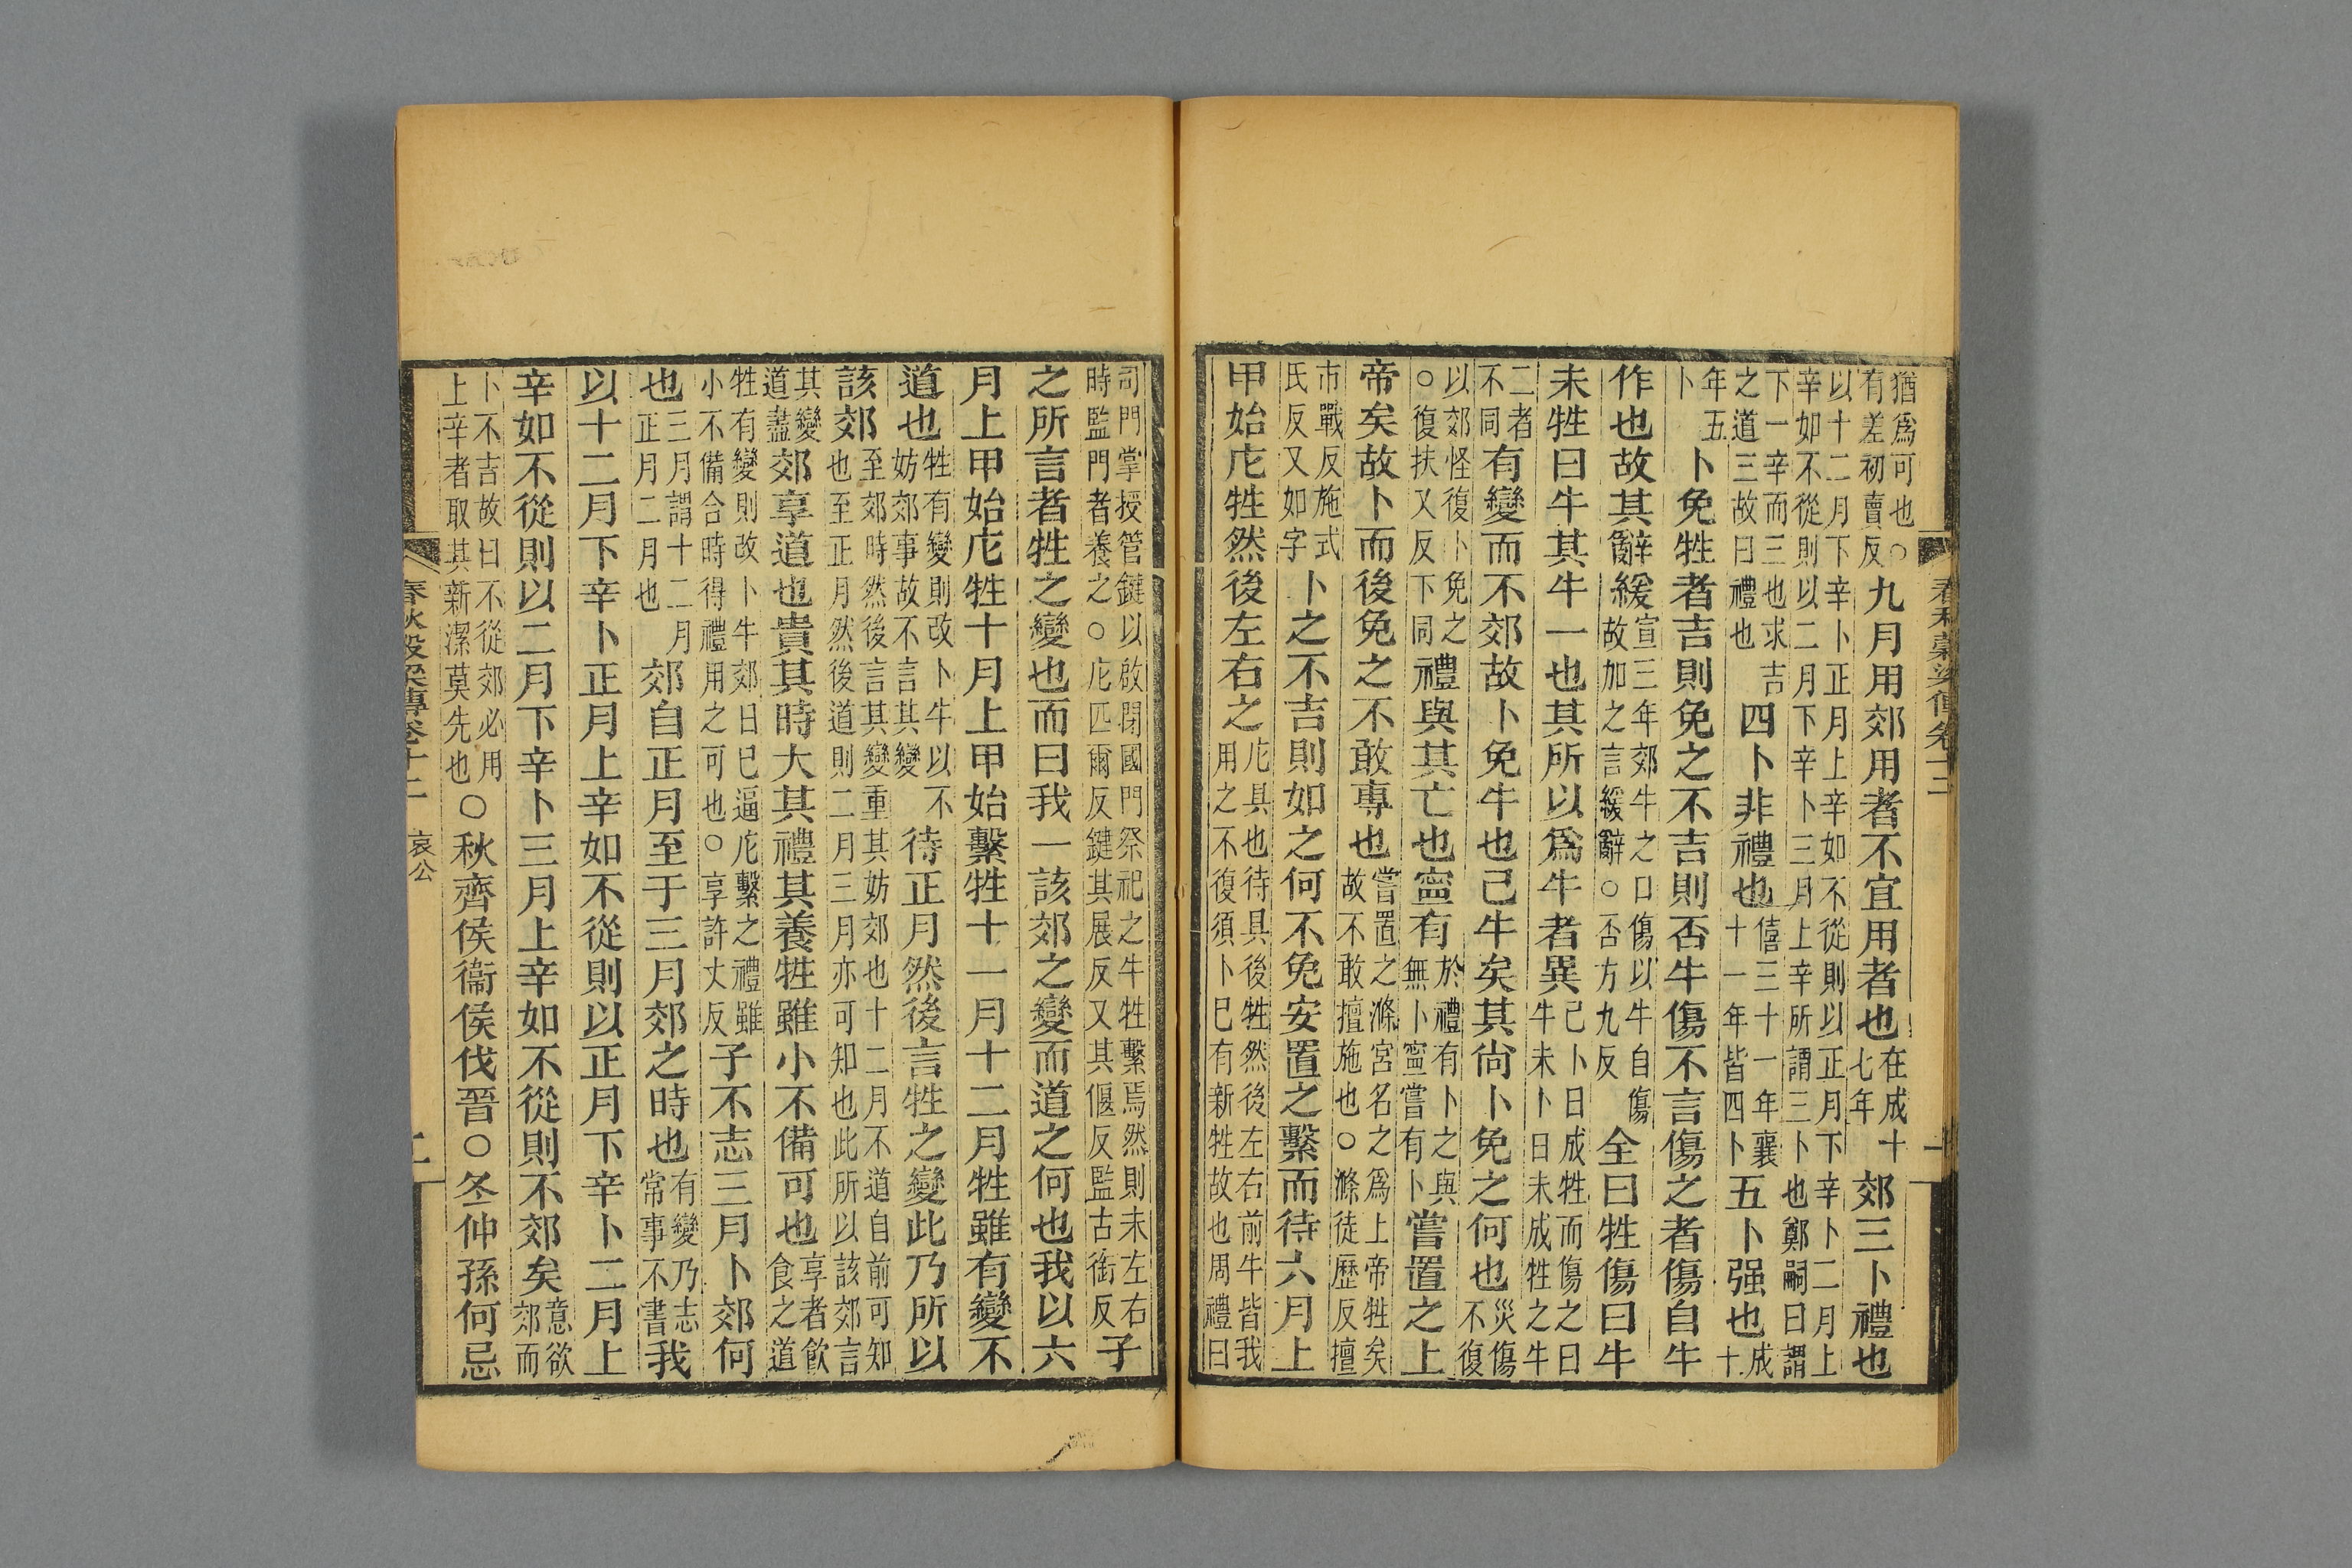 春秋穀梁傳卷十二
猶爲可也○有差初賣反九月用郊用者不宜用者也在成十七年郊三卜禮也
以十二月下辛卜正月上辛如不從則以正月下辛卜二月上
辛如不從則以二月下辛卜三月上辛所謂三卜也鄭嗣曰謂
下一辛而三也求吉之道三故曰禮也四卜非禮也僖三十一年襄十一年皆四卜五卜强也成十
年五卜卜免牲者吉則免之不吉則否牛傷不言傷之者傷自牛
作也故其辭緩宣三年郊牛之口傷以牛自傷故加之言緩辭○否方九反全曰牲傷曰牛
未牲曰牛其牛一也其所以爲牛者異己卜日成牲而傷之曰牛未卜日未成牲之牛
二者不同有變而不郊故卜免牛也已牛矣其尙卜免之何也災傷不復
以郊怪復卜免之○復扶又反下同禮與其亡也寧有於禮有卜之與無卜寧嘗有卜嘗置之上
帝矣故卜而後免之不敢專也嘗置之滌宮名之爲上帝牲矣故不敢擅施也○滌徒歷反擅
市戰反施式氏反又如字卜之不吉則如之何不免安置之繫而待六月上
甲始庀牲然後左右之庀具也待具後牲然後左右前牛皆我用之不復須卜已有新牲故也周禮曰
司門掌授管鍵以啟閉國門祭祀之牛牲繫焉然則未左右
時監門者養之○庀匹爾反鍵其展反又其偃反監古銜反子
之所言者牲之變也而曰我一該郊之變而道之何也我以六
月上甲始庀牲十月上甲始繫牲十一月十二月牲雖有變不
道也牲有變則改卜牛以不妨郊事故不言其變待正月然後言牲之變此乃所以
該郊至郊時然後言其變重其妨郊也十二月不道自前可知也至正月然後道則二月三月亦可知也此所以該郊言
其變道盡郊享道也貴其時大其禮其養牲雖小不備可也享者飲食之道
牲有變則改卜牛郊日已逼庀繫之禮雖小不備合時得禮用之可也○享許丈反子不志三月卜郊何
也三月謂十二月正月二月也郊自正月至于三月郊之時也有變乃志常事不書我
以十二月下辛卜正月上辛如不從則以正月下辛卜二月上
辛如不從則以二月下辛卜三月上辛如不從則不郊矣意欲郊而
卜不吉故曰不從郊必用上辛者取其新潔莫先也○秋齊侯衞侯伐晉○冬仲孫何忌
春秋穀梁傳卷十二 哀公 二